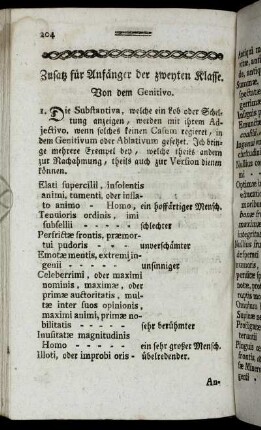 204
Zusatz für Anfänger der zweyten Klasse.
Von dem Genitivo.
1. Die Substantiva, welche ein Lob oder Schel-
tung anzeigen, werden mit ihrem Ad-
jectivo, wenn solches keinen Casum regieret, in
dem Genitivum oder Ablativum gesetzet. Ich brin-
ge mehrere Exempel bey, welche theils andern
zur Nachahmung, theils auch zur Version dienen
können.
Elati supercilii, insolentis
animi, tumenti, oder infla-
to animo - Homo, ein hoffärtiger Mensch.
Tenuioris ordinis, imi
subsellii - - - - schlechter
Perfrictæ frontis, præmor-
tui pudoris - - - unverschämter
Emotæ mentis, extremi in-
genii - - - - - unsinniger
Celeberrimi, oder maximi
nominis, maximæ, oder
primæ auctoritatis, mul-
tæ inter suos opinionis,
maximi animi, primæ no-
bilitatis - - - - - sehr berühmter
Inusitatæ magnitudinis
Homo - - - - - ein sehr großer Mensch.
Illoti, oder improbi oris - übelredender.
An-